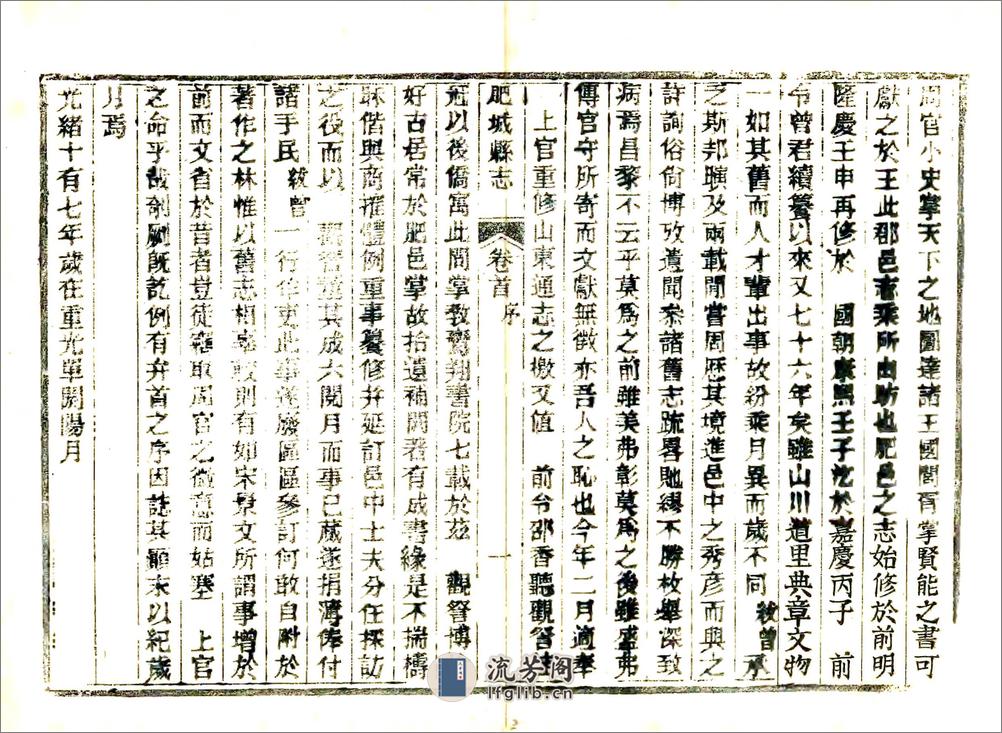 周官小史掌天下之地圖達諸王國閭胥掌賢能之書可
獻之於王此郡邑志乘所由昉也肥邑之志始修於前明
隆慶壬申再修於 國朝康熙壬子迄於嘉慶丙子 前
令曾君續纂以來又七十六年矣雖山川道里典章文物
一如其舊而人才輩出事故紛乘月異而歲不同 紱曾 承
乏斯邦曠及兩載間嘗周歷其境進邑中之秀彥而與之
許詢俗尚博攷遺聞叅諸舊志疏畧貤繆不勝枚舉深致
病焉昌黎不云乎莫爲之前雖美弗彰莫爲之後雖盛弗
傳官守所寄而文獻無徵亦吾人之恥也今年二月適奉
上官重修山東通志之檄又值 前令邵香聽觀詧
肥城縣志 卷首 序 一
冠以後僑寓此間掌教鸞翔書院七載於茲 觀詧博
好古居常於肥邑掌故拾遺補闕著有成書緣是不揣檮
昧偕與商搉體例重事纂修并延訂邑中士夫分任採訪
之役而以 觀詧董其成六閱月而事已蕆遂捐薄俸付
諸手民 紱曾 一行作吏此事遂廢區區參訂何敢自附於
著作之林惟以舊志相 較則有如宋景文所謂事增於
前而文省於昔者豈徒竊取周官之微意而姑塞 上官
之命乎哉剞劂旣訖例有弁首之序因誌其顚末以紀歲
月焉
光緒十有七年歲在重光單閼陽月
流芳阁
lfglib.cn
2